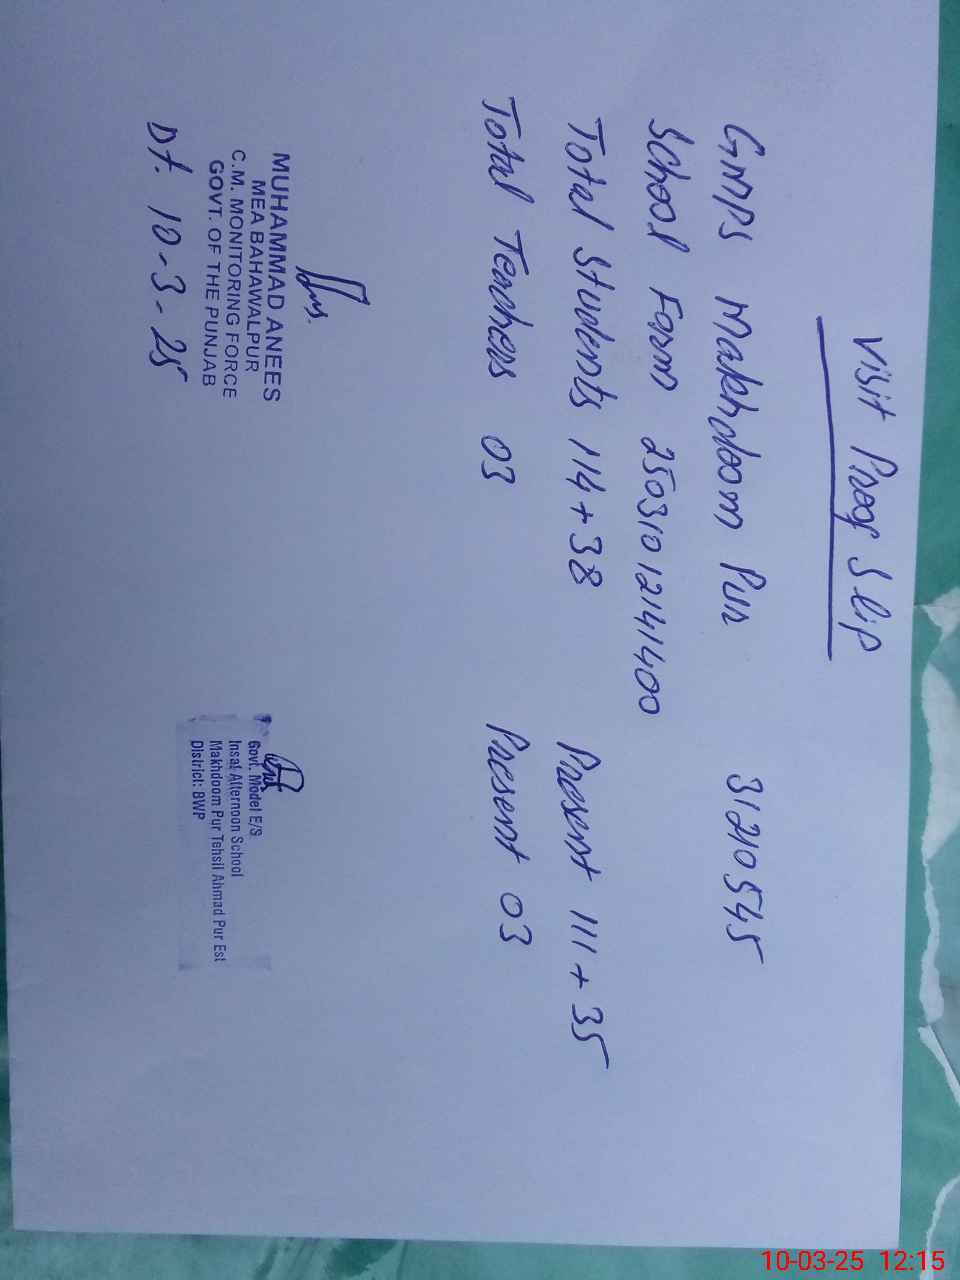 Visit Proof Slip
GMPS Makhdoom Pur 31210545
School Form 25031012141400
Total Students 114+38 Present 111+35
Total Teachers 03 Present 03
MUHAMMAD ANEES
MEA BAHAWALPUR
C.M. MONITORING FORCE
GOVT. OF THE PUNJAB
Dt. 10-3-25
Govt. Model E/S
Insaf Afternoon School
Makhdoom Pur Tehsil Ahmad Pur Est
District: BWP
10-03-25 12:15